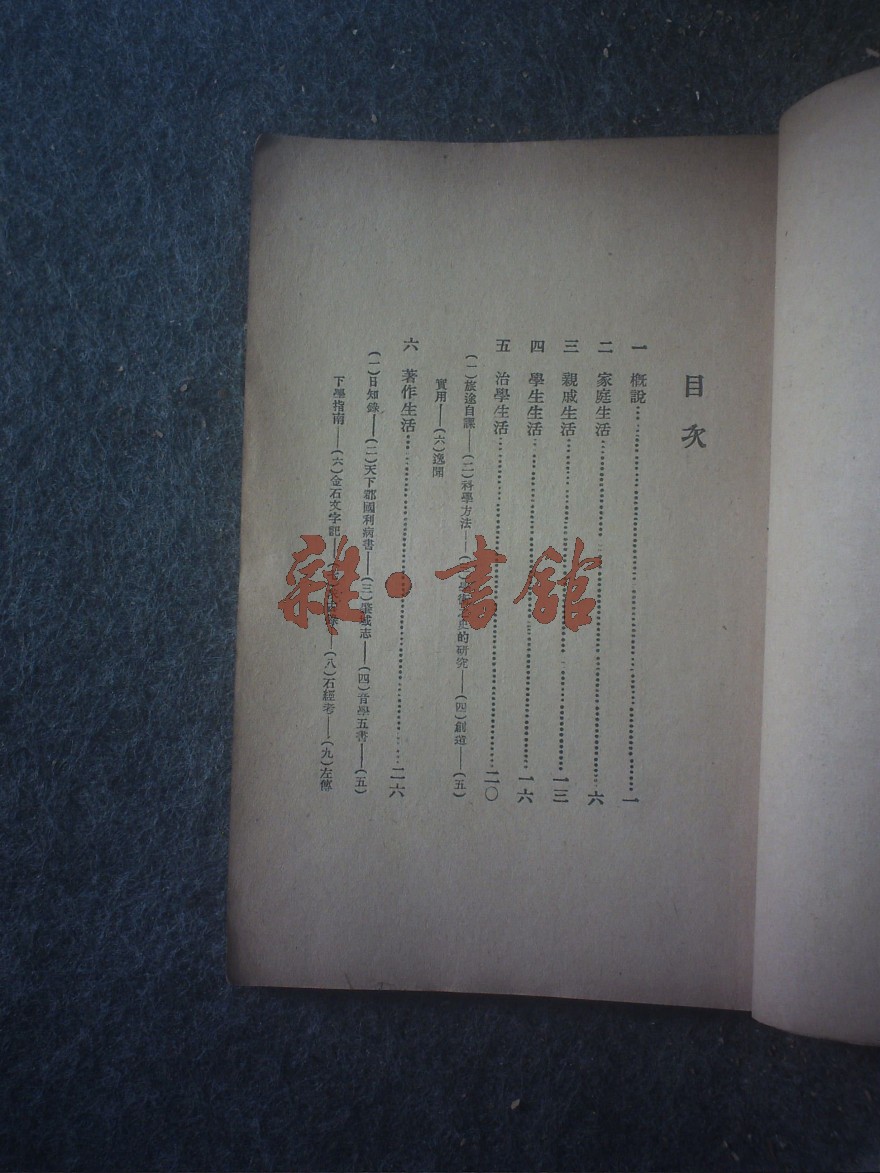 目次
一　概說…………一
二　家庭生活…………六
三　親戚生活…………一三
四　學生生活…………一六
五　治學生活…………二〇
(一)旅途自課——(二)科學方法——的研究——(四)創造——(五)
實用——(六)逸聞
六　著作生活…………二六
(一)日知錄——(二)天下郡國利病書——(三)肇域志——(四)音學五書——(五)
下學指南——(六)金石文字記——(八)石經考——(九)左傳
雜·書館